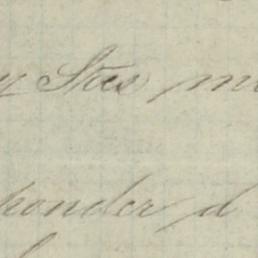 y Stes mi
ponder d